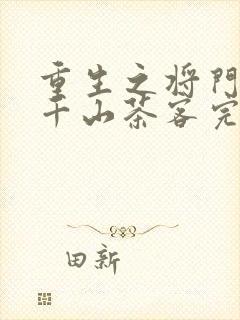 重生之将门
千山茶客完
田新